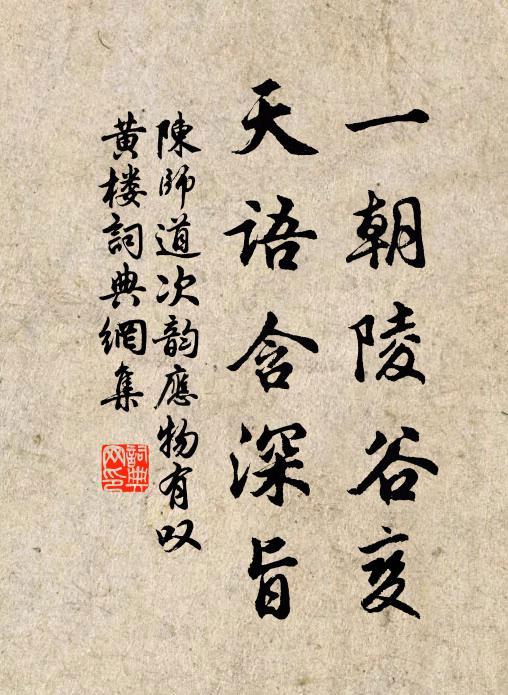 一朝陵谷变
天语含深旨
陳師道次韵應物有叹
黄楼詞典網集
詞典网印